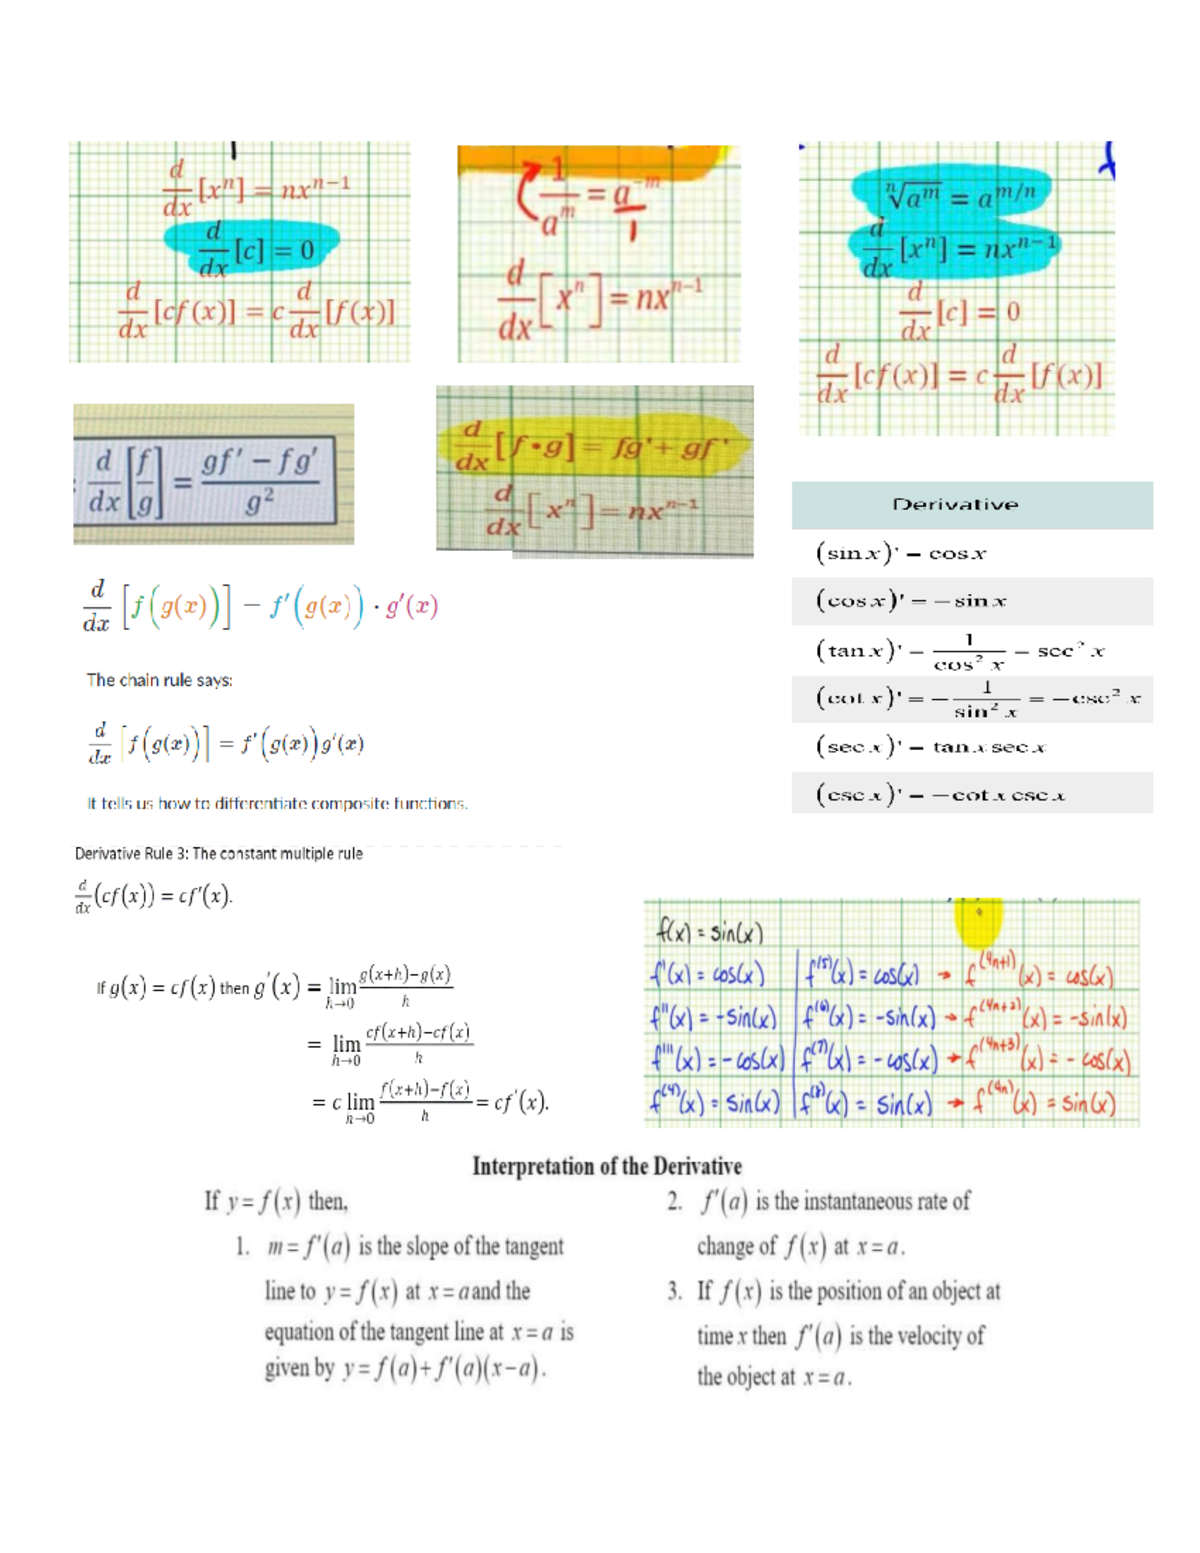 d/dx [xⁿ] = nxⁿ⁻¹
d/dx [c] = 0
d/dx [cf(x)] = c d/dx [f(x)]
1/aᵐ = a⁻ᵐ/1
d/dx [xⁿ] = nxⁿ⁻¹
ⁿ√aᵐ = aᵐ/ⁿ
d/dx [xⁿ] = nxⁿ⁻¹
d/dx [c] = 0
d/dx [cf(x)] = c d/dx [f(x)]
d/dx [f/g] = (gf' − fg')/g²
d/dx [f•g] = fg' + gf'
d/dx [xⁿ] = nxⁿ⁻¹
d/dx [f(g(x))] = f'(g(x)) · g'(x)
The chain rule says:
d/dx [f(g(x))] = f'(g(x))g'(x)
It tells us how to differentiate composite functions.
Derivative
(sin x)' = cos x
(cos x)' = − sin x
(tan x)' = 1/cos² x = sec² x
(cot x)' = − 1/sin² x = −csc² x
(sec x)' = tan x sec x
(csc x)' = −cot x csc x
Derivative Rule 3: The constant multiple rule
d/dx (cf(x)) = cf'(x).
If g(x) = cf(x) then g'(x) = lim h→0 (g(x+h)−g(x))/h
= lim h→0 (cf(x+h)−cf(x))/h
= c lim h→0 (f(x+h)−f(x))/h = cf'(x).
f(x) = sin(x)
f'(x) = cos(x) | f⁽⁵⁾(x) = cos(x) → f⁽⁴ⁿ⁺¹⁾(x) = cos(x)
f''(x) = -sin(x) | f⁽⁶⁾(x) = -sin(x) → f⁽⁴ⁿ⁺²⁾(x) = -sin(x)
f'''(x) = -cos(x) | f⁽⁷⁾(x) = -cos(x) → f⁽⁴ⁿ⁺³⁾(x) = - cos(x)
f⁽⁴⁾(x) = sin(x) | f⁽⁸⁾(x) = sin(x) → f⁽⁴ⁿ⁾(x) = sin(x)
Interpretation of the Derivative
If y = f(x) then,
1. m = f'(a) is the slope of the tangent
line to y = f(x) at x = a and the
equation of the tangent line at x = a is
given by y = f(a) + f'(a)(x − a).
2. f'(a) is the instantaneous rate of
change of f(x) at x = a.
3. If f(x) is the position of an object at
time x then f'(a) is the velocity of
the object at x = a.